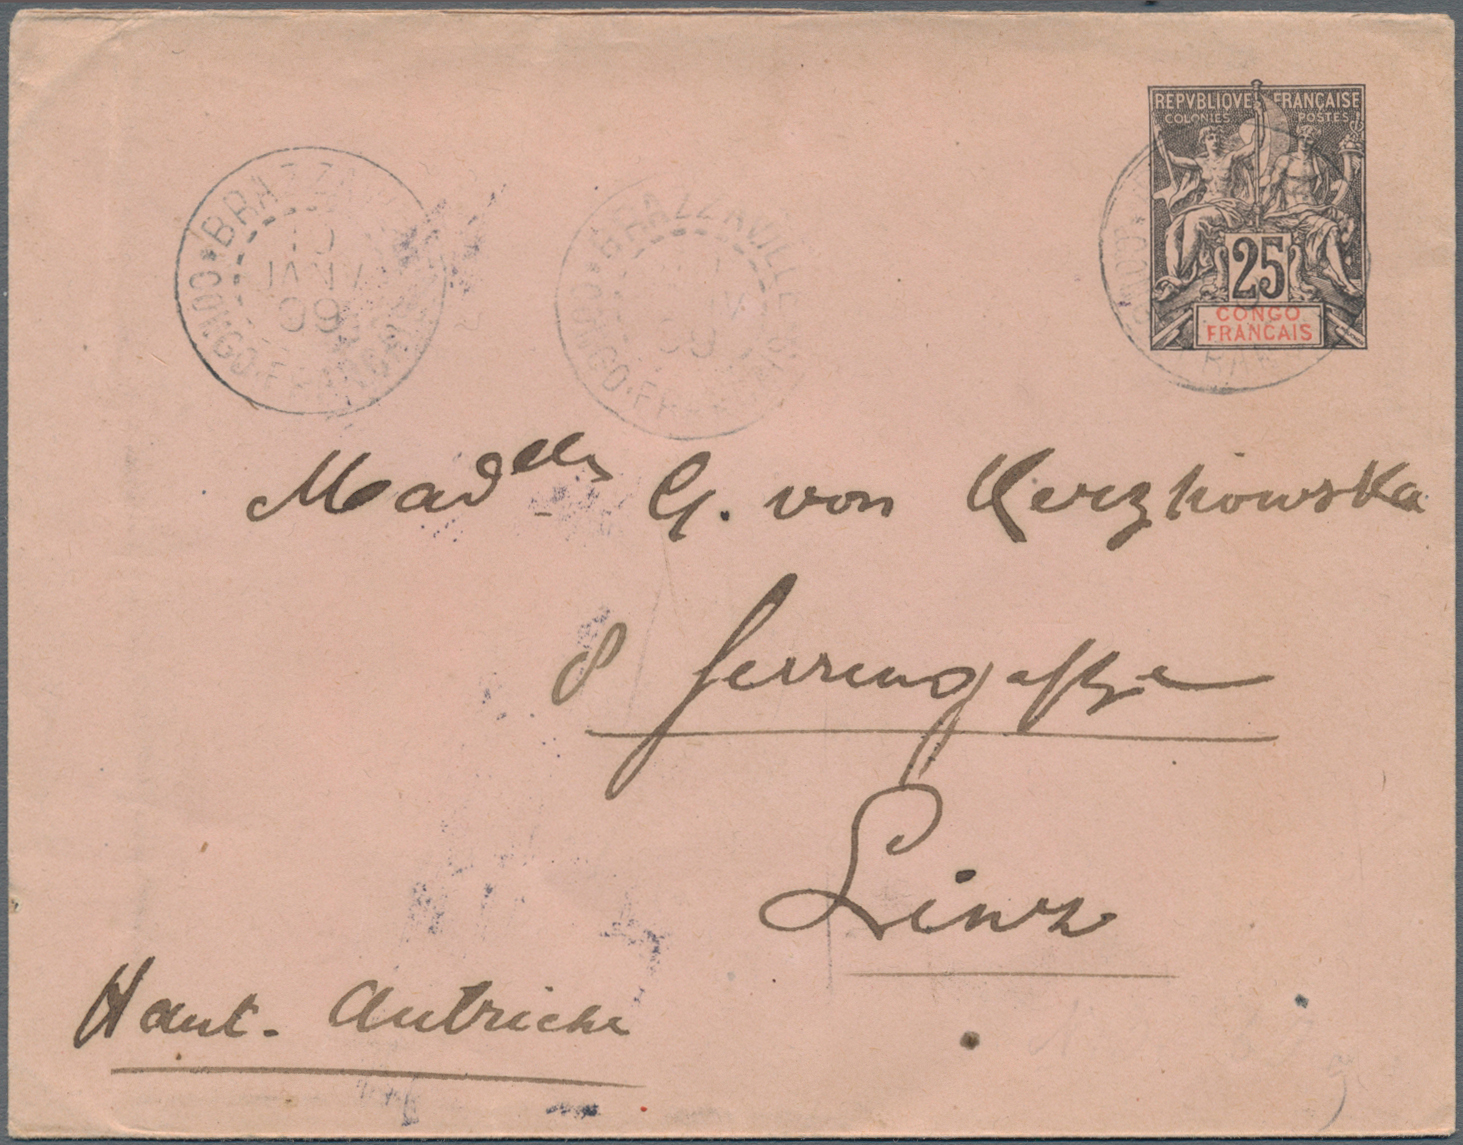 REPVBLIQUE FRANÇAISE
COLONIES POSTES
25
CONGO
FRANÇAIS
BRAZZAVILLE
10
JANV
99
CONGO-FRANÇAIS
BRAZZAVILLE
99
CONGO-FRANÇAIS
Mad<sup>elle</sup> G. von Kerzkowska
8 Herrengasse
Linz
Haut-Autriche